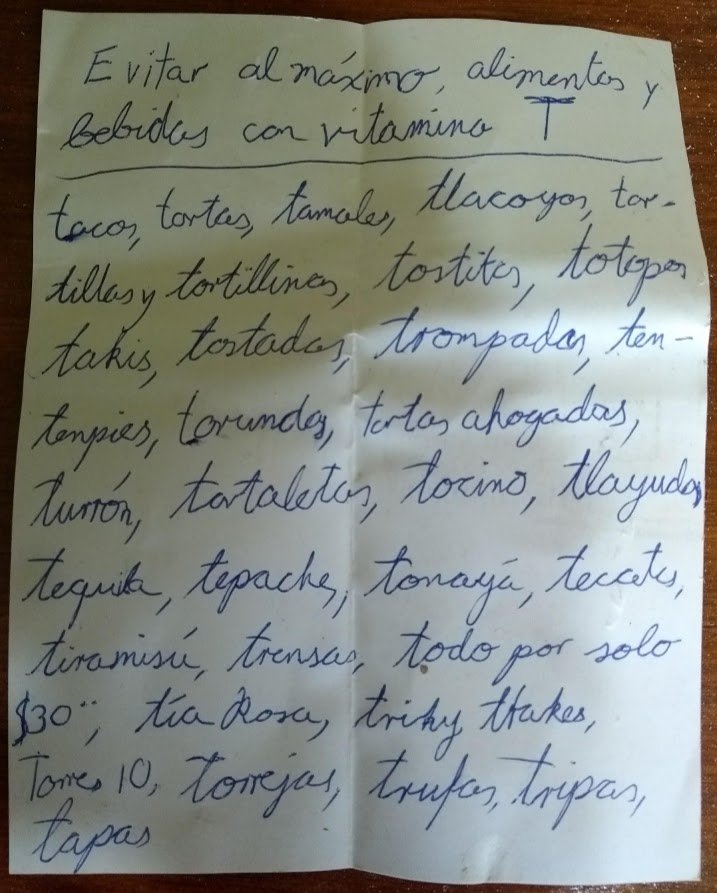 Evitar al máximo, alimentos y
bebidas con vitamina T
tacos, tortas, tamales, tlacoyos, tor-
tillas y tortillinas, tostitos, totopos
takis, tostadas, trompadas, ten-
tenpies, torundas, tortas ahogadas,
turrón, tartaletas, tocino, tlayudas
tequila, tepache, tonayá, tecates,
tiramisú, trensas, todo por solo
$30°°, tía Rosa, triky trakes,
Torres 10, torrejas, trufas, tripas,
tapas